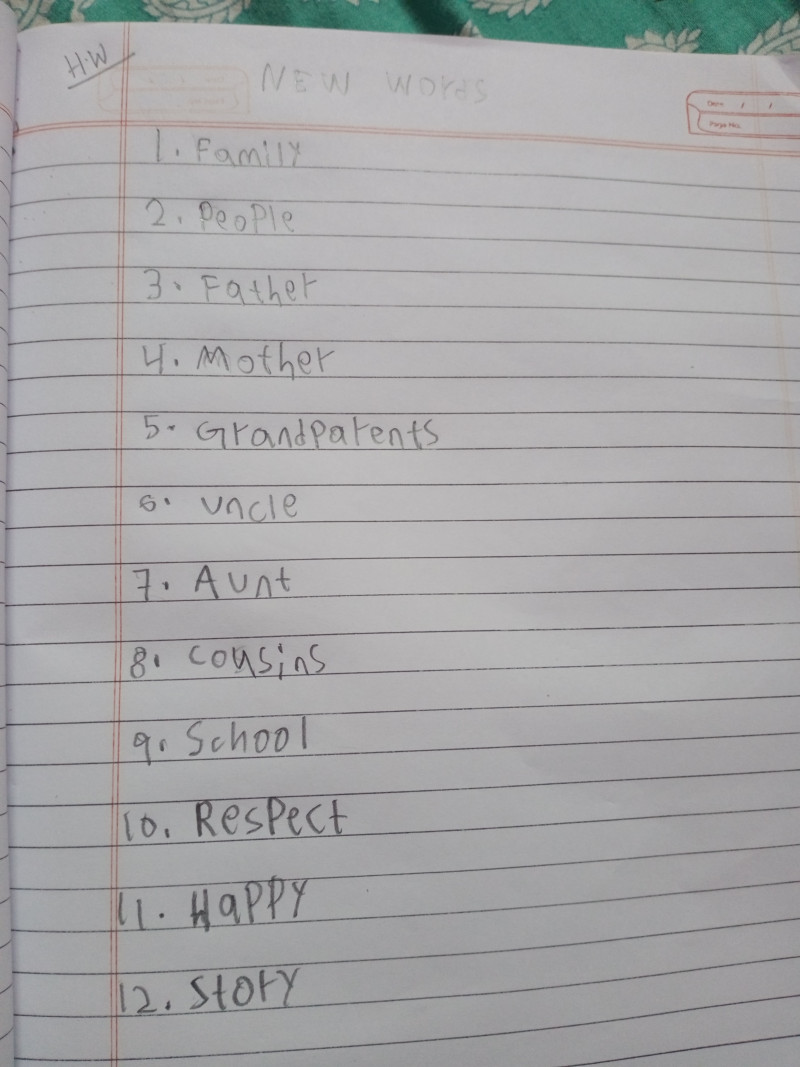 H.W
NEW Words
Date / /
Page No.
1. Family
2. People
3. Father
4. Mother
5. Grandparents
6. Uncle
7. Aunt
8. Cousins
9. School
10. Respect
11. Happy
12. Story